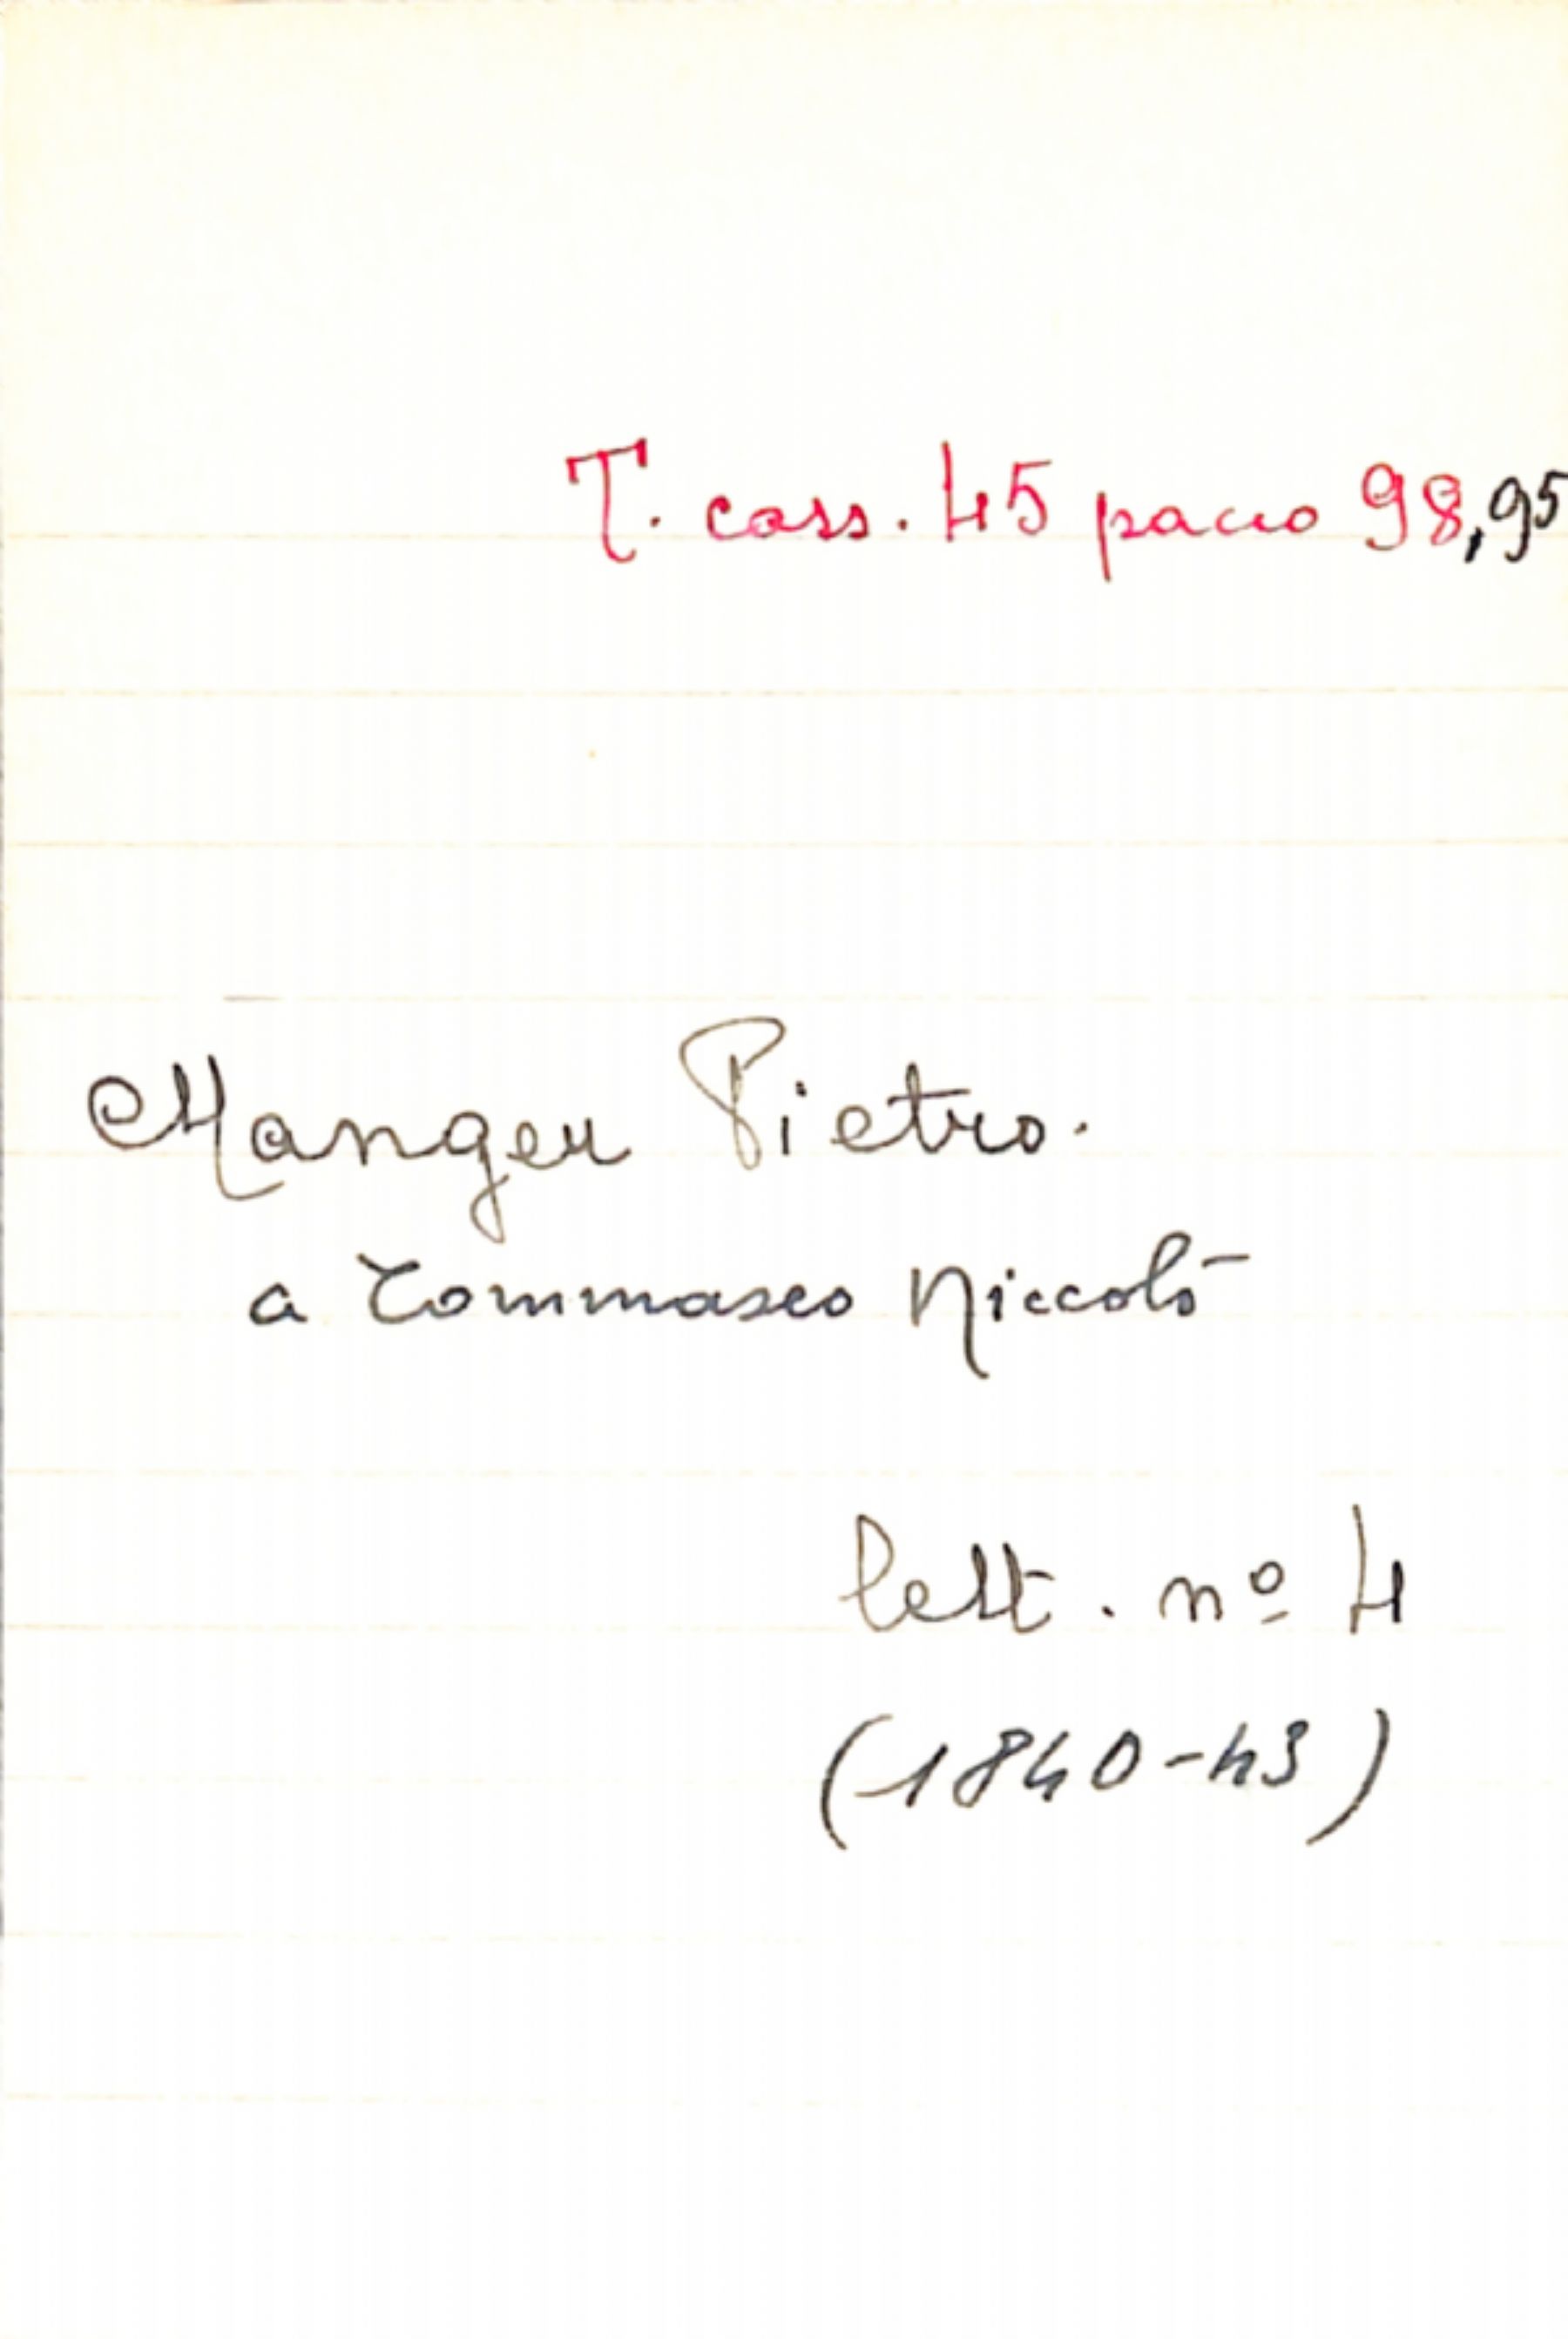 T. cass. 45 pacco 98,95
Manger Pietro.
a Tommaseo Niccolò
lett. nº 4
(1840-43)